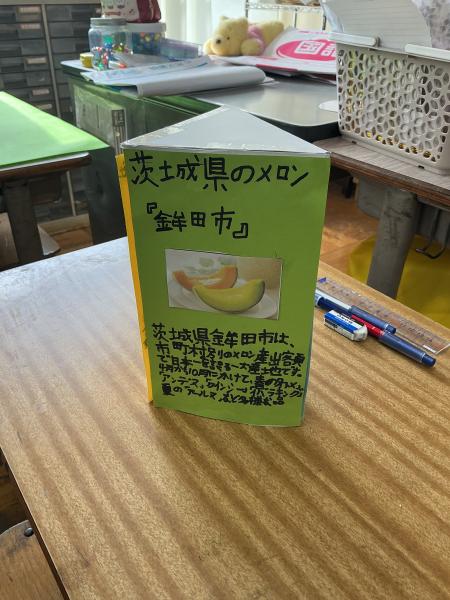 茨城県のメロン
『鉾田市』
茨城県鉾田市は、
市町村別のメロン産出額
で日本一を誇る一大産地です。
4月から10月にかけて、春の
アンデス、クインシー、
夏のアールス、など多種多品